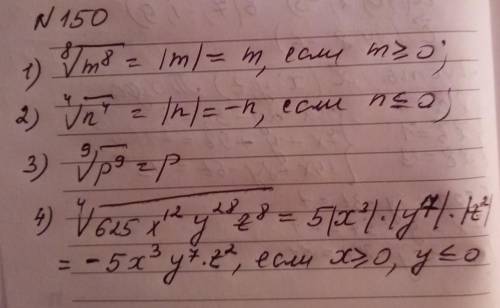 N 150
1) ⁸√m⁸ = |m| = m, если m ≥ 0;
2) ⁴√n⁴ = |n| = -n, если n ≤ 0;
3) ⁹√p⁹ = p
4) ⁴√625x¹²y²⁸z⁸ = 5|x³|·|y⁷|·|z²|
= -5x³y⁷·z², если x ≥ 0, y ≤ 0